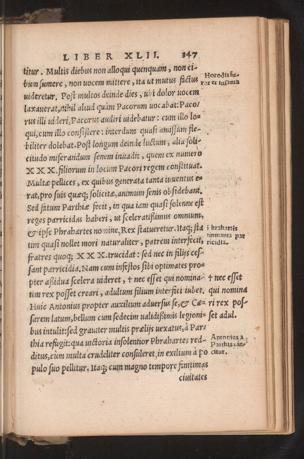 LIBER XLII. 247
titur. Multis diebus non alloqui quenquam, non ci-
bum sumere, non uocem mittere, ita ut mutus factus
uideretur. Post multos deinde dies, ubi dolor uocem
laxauerat, nihil aliud quàm Pacorum uocabat: Paco/
rus illi uideri, Pacorus audiri uidebatur: cum illo lo-
qui, cum illo consistere: interdum quasi amissum fle-
biliter dolebat. Post longum deinde luctum, alia soli-
citudo miserandum senem inuadit, quem ex numero
XXX. filiorum in locum Pacori regem constituat.
Multæ pellices, ex quibus generata tanta iuuentus e-
rat, pro suis quæq; solicitæ, animum senis obsidebant.
Sed fatum Parthiæ fecit, in qua iam quasi solenne est
reges parricidas haberi, ut sceleratissimus omnium,
& ipse Phrahartes nomine, Rex statueretur. Itaq; sta
tim quasi nollet mori naturaliter, patrem interfecit,
fratres quoq; XXX. trucidat: sed nec in filijs ces-
sant parricidia. Nam cum infestos sibi optimates pro-
pter assidua scelera uideret, † nec esset qui nomina-
tim rex posset creari, adultum filium interfici iubet.
Huic Antonius propter auxilium aduersus se, & Cæ-
sarem latum, bellum cum sedecim ualidissimis legioni-
bus intulit: sed grauiter multis prælijs uexatus, à Par
thia refugit: qua uictoria insolentior Phrahartes red-
ditus, cum multa crudeliter consuleret, in exilium à po
pulo suo pellitur. Itaq; cum magno tempore finitimas
ciuitates
Horodis fu-
† nec esset
qui nomina
ri rex pos-
set adul.